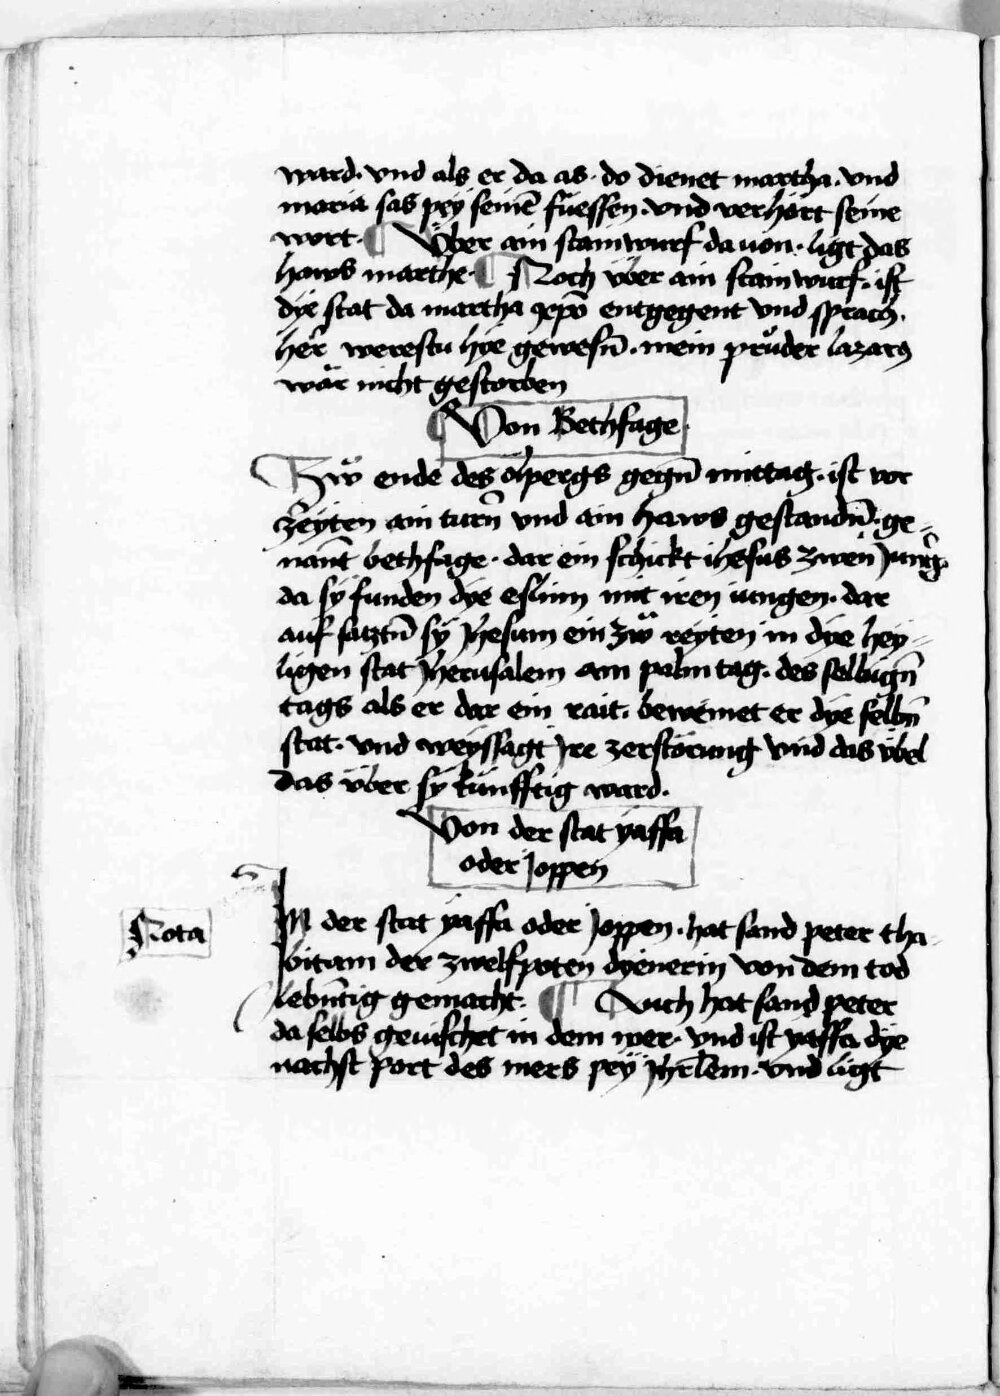 ward. vnd als er da as. do dienet martha. vnd
maria sas pey seinē füessen. vnd verhört seine
wort. ¶ Über ain stainwurf dauon. ligt das
haws marthe. ¶ Noch über ain stainwurf. ist
dye stat da martha xp̄o entgegent vnd sprach.
her werestu hye gewesn̄. mein průder lazarꝰ
wär nicht gestorben
¶ Von Bethfage.
Zẘ ende des ölpergs gegn̄ mittag. ist vor
zeyten ain turn̄ vnd ain haws gestandn̄. ge=
nant bethfage. dar ein schickt ihesus zwen Junḡ.
da sy funden dye eslinn mit iren iungen. dar
auf satztn̄ sy Jhesum ein zẘ reyten in dye hey=
ligen stat Jherusalem am palm tag. des selbign̄
tags als er dar ein rait. beweinet er dye selbn̄
stat. vnd weyssagt Jre zerstörung vnd das übel
das über sy künfftig ward.
Von der stat yaffa
oder Joppen
Nota
In der stat yaffa oder Joppen. hat sand peter tha=
bitam der zwelfpoten dyenerin von dem tod
lebn̄tig gemacht. ¶ Auch hat sand peter
da selbs geuischet in dem mer. vnd ist yaffa dye
nachst port des mers pey Jhrl̄em. vnd ligt